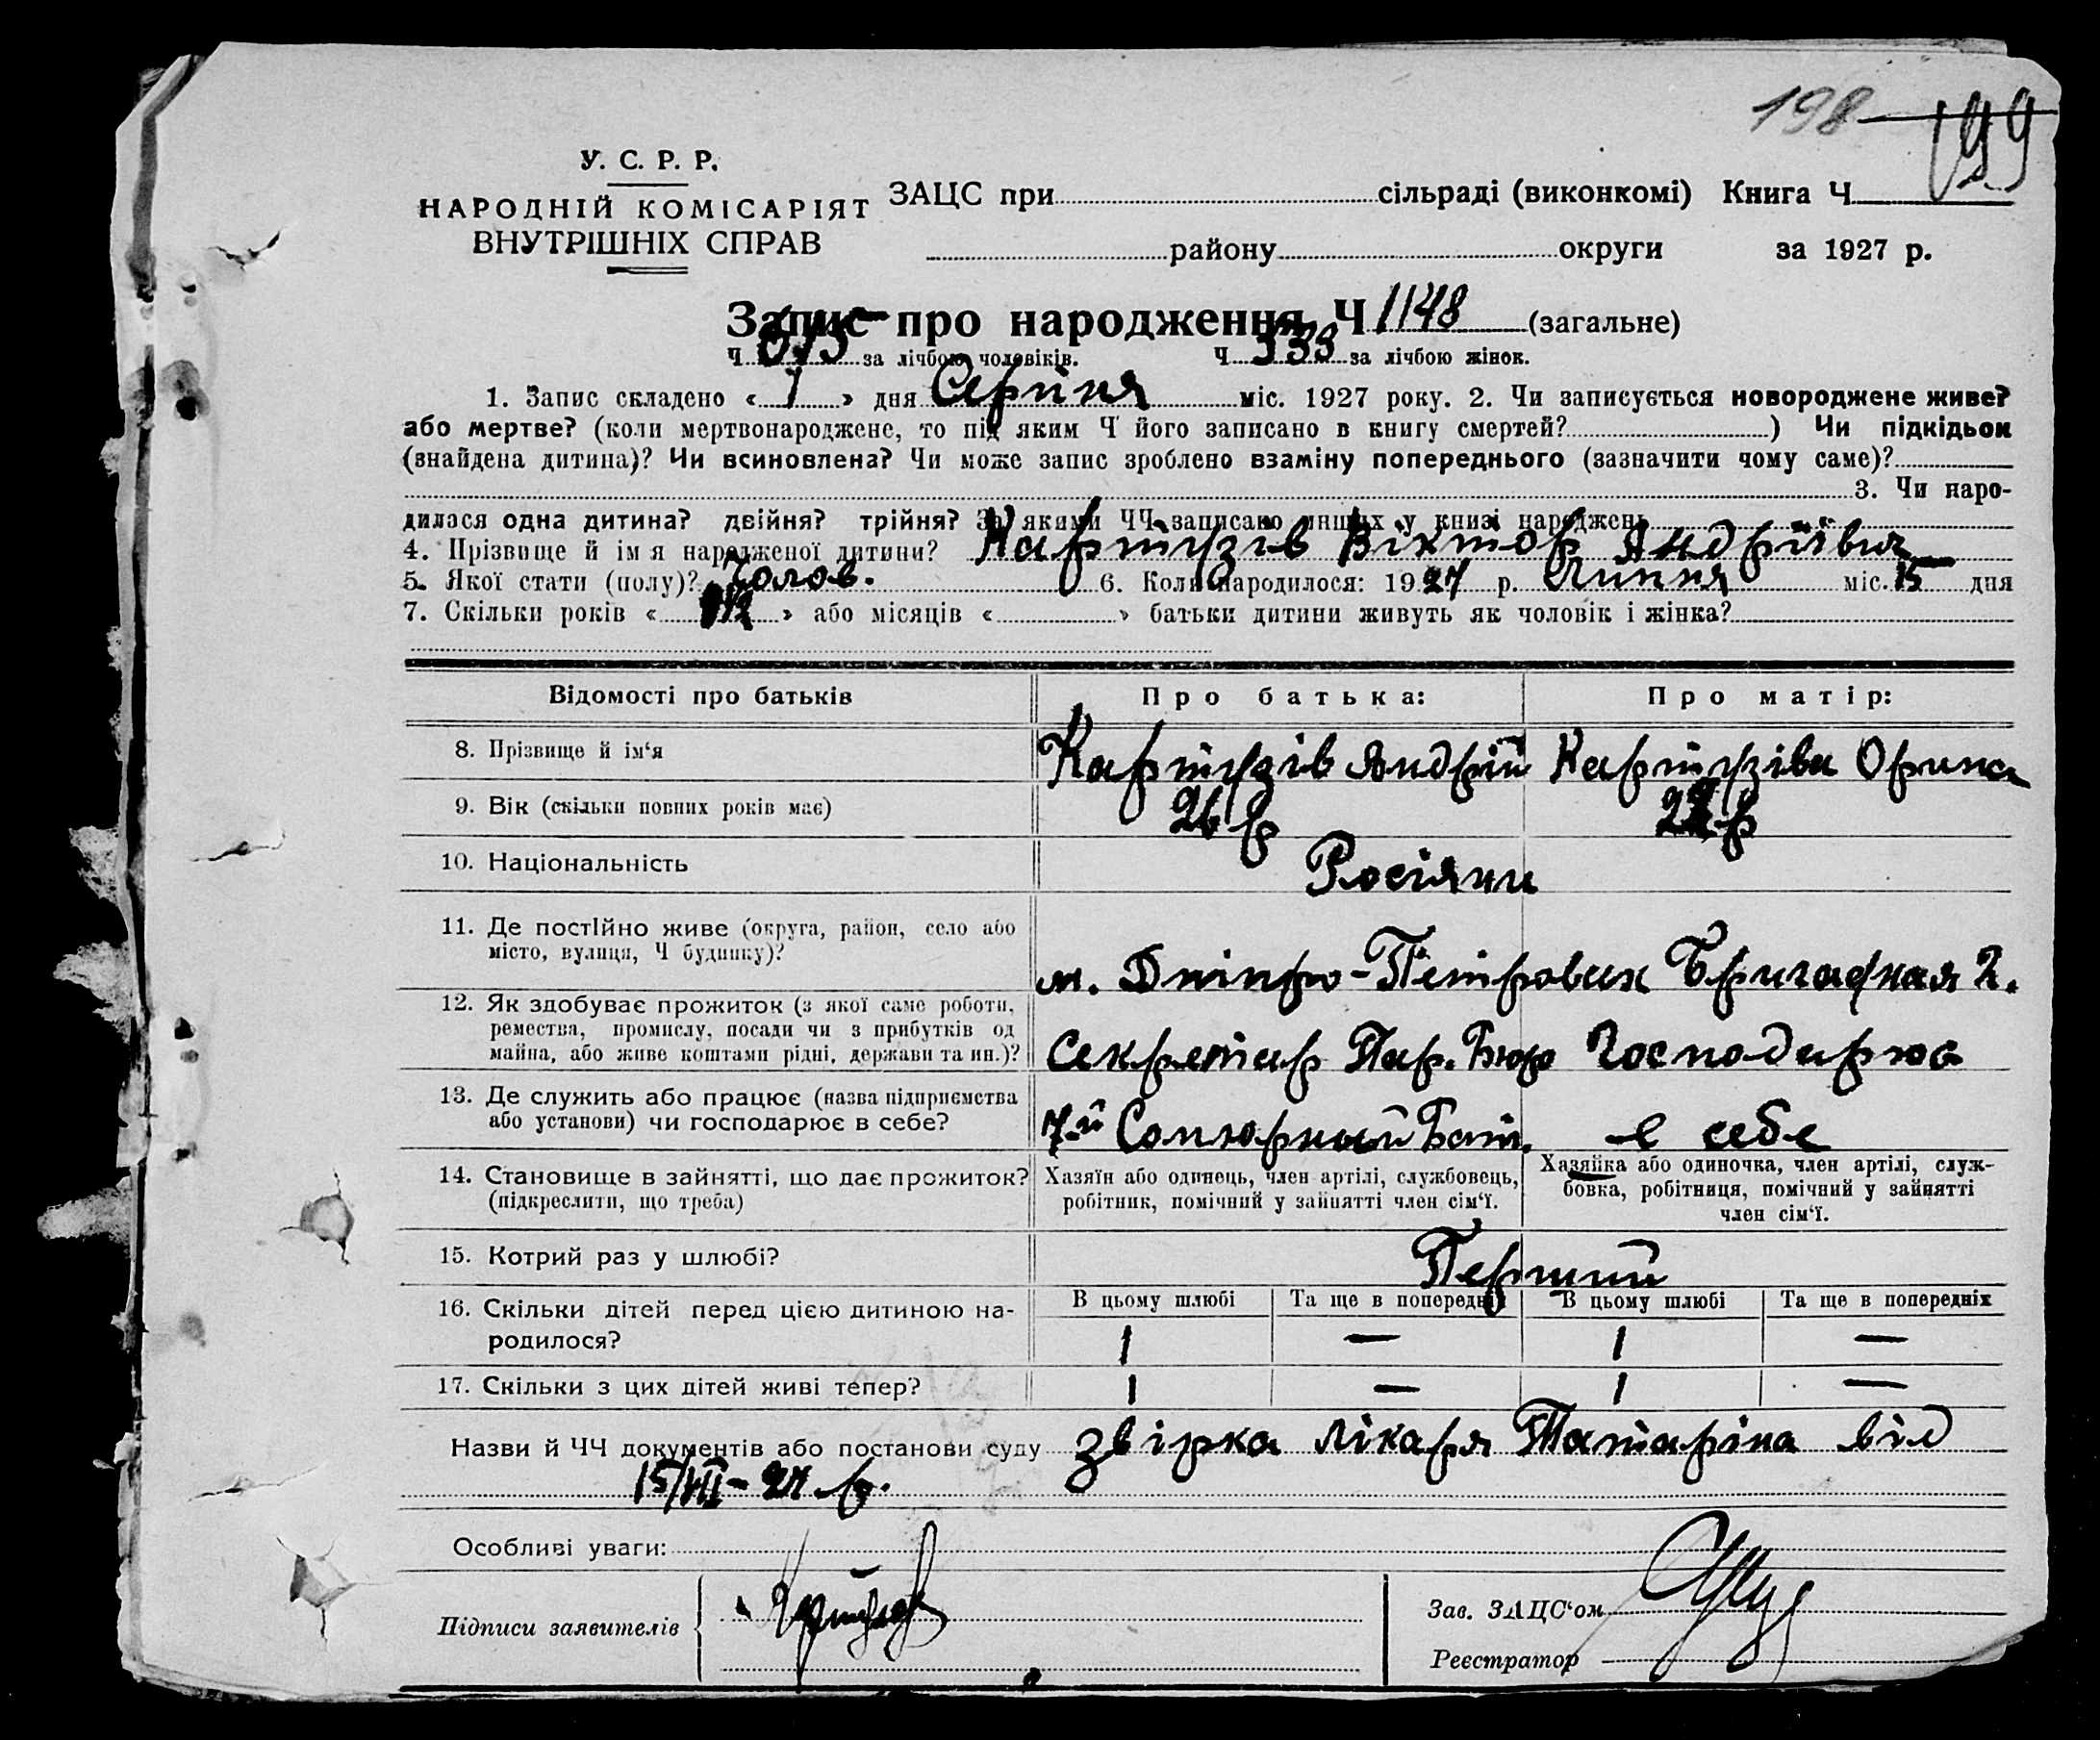 198 199
У. С. Р. Р.
НАРОДНІЙ КОМІСАРІЯТ
ВНУТРІШНІХ СПРАВ
ЗАЦС при сільраді (виконкомі) Книга Ч
району округи за 1927 р.
Запис про народження Ч 1148 (загальне)
Ч 615 за лічбою чоловіків. Ч 533 за лічбою жінок.
1. Запис складено « 1 » дня Серпня міс. 1927 року. 2. Чи записується новороджене живе?
або мертве? (коли мертвонароджене, то під яким Ч його записано в книгу смертей? ) Чи підкідьок
(знайдена дитина)? Чи всиновлена? Чи може запис зроблено взаміну попереднього (зазначити чому саме)?
3. Чи наро-
дилася одна дитина? двійня? трійня? За якими ЧЧ записано инших у книзі народжень
4. Прізвище й ім'я народженої дитини? Картузів Віктор Андріївич
5. Якої статі (полу)? Чолов. 6. Коли народилося: 1927 р. Липня міс. 15 дня
7. Скільки років « » або місяців « » батьки дитини живуть як чоловік і жінка?
Відомості про батьків Про батька: Про матір:
8. Прізвище й ім'я Картузів Андрій Картузіва Орина
9. Вік (скільки повних років має) 26 р 22 р
10. Національність Росіяни
11. Де постійно живе (округа, район, село або
місто, вулиця, Ч будинку)?
м. Дніпро-Петровськ Бригадная 2.
12. Як здобуває прожиток (з якої саме роботи,
ремества, промислу, посади чи з прибутків од
майна, або живе коштами рідні, держави та ин.)?
Секретар Пар. Бюро Господарює
13. Де служить або працює (назва підприємства
або установи) чи господарює в себе?
7-й Батт. в себе
14. Становище в зайнятті, що дає прожиток?
(підкреслити, що треба)
Хазяїн або одинець, член артілі, службовець,
робітник, помічний у зайнятті член сім'ї.
Хазяйка або одиночка, член артілі, служ-
бовка, робітниця, помічний у зайнятті
член сім'ї.
15. Котрий раз у шлюбі? Перший
16. Скільки дітей перед цією дитиною на-
родилося?
В цьому шлюбі Та ще в попередніх В цьому шлюбі Та ще в попередніх
1 — 1 —
17. Скільки з цих дітей живі тепер? 1 — 1 —
Назви й ЧЧ документів або постанови суду звірка лікаря Татаріна від
15/VII-27 р.
Особливі уваги:
Підписи заявителів
Зав. ЗАЦС'ом
Реєстратор